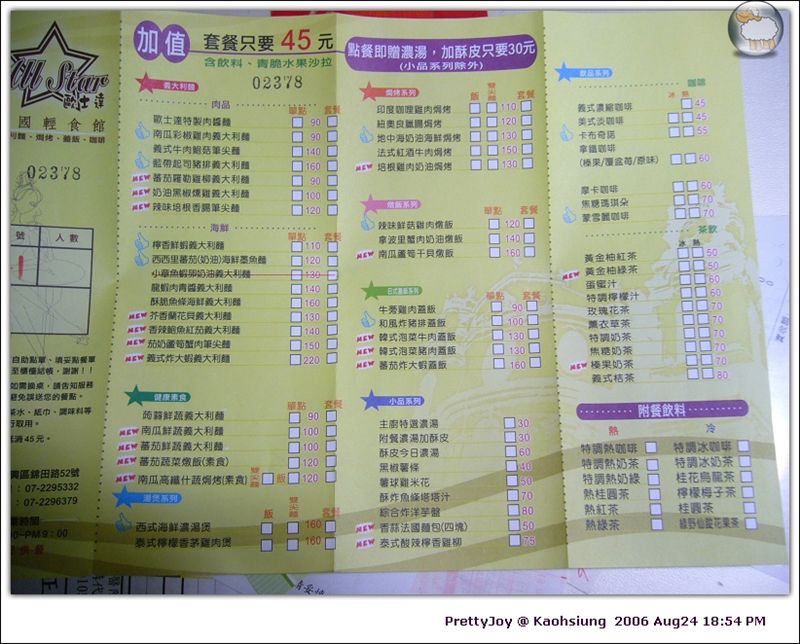 All Star
歐士達
國輕食館
利麵、焗烤、蓋飯、咖啡
02378
號 人數
自助點單、填妥點餐單
至櫃檯結帳，謝謝!!
如需換桌，請告知服務
避免誤送您的餐點。
茶水、紙巾、調味料等
行取用。
消45元。
興區錦田路52號
07-2295332
07-2296379
PM9:00
加值 套餐只要45元
含飲料、青脆水果沙拉
02378
義大利麵
肉品 單點 套餐
歐士達特製肉醬麵 90
南瓜彩椒雞肉義大利麵 90
義式牛肉鮑菇筆尖麵 140
藍帶起司豬排義大利麵 160
NEW 蕃茄羅勒雞柳義大利麵 90
NEW 奶油黑椒燻雞義大利麵 100
NEW 辣味培根香腸筆尖麵 120
海鮮 單點 套餐
檸香鮮蝦義大利麵 110
西西里蕃茄(奶油)海鮮墨魚麵 120
小章魚蝦卵奶油義大利麵 130
龍蝦肉青醬義大利麵 140
酥脆魚條海鮮義大利麵 160
NEW 芥香蘭花貝義大利麵 130
NEW 香辣鮑魚紅茄義大利麵 140
NEW 茄奶蘆筍蟹肉筆尖麵 150
NEW 義式炸大蝦義大利麵 220
健康素食 單點 套餐
蒟蒻鮮蔬義大利麵 90
NEW 南瓜鮮蔬義大利麵 100
NEW 蕃茄鮮蔬義大利麵 100
NEW 蕃茄蔬菜燉飯(素食) 120
NEW 南瓜高纖什蔬焗烤(素食) 雙尖麵 飯 120
湯煲系列 飯 雙尖麵 套餐
西式海鮮濃湯煲 160
泰式檸檬香茅雞肉煲 160
點餐即贈濃湯，加酥皮只要30元
(小品系列除外)
焗烤系列 飯 雙尖麵 單點 套餐
印度咖哩雞肉焗烤 110
紐奧良臘腸焗烤 55
地中海奶油海鮮焗烤 130
法式紅酒牛肉焗烤 150
NEW 培根雞肉奶油焗烤 130
燉飯系列 單點 套餐
辣味鮮菇雞肉燉飯 120
拿波里蟹肉奶油燉飯 140
NEW 南瓜蘆筍干貝燉飯 160
日式蓋飯系列 單點 套餐
牛蒡雞肉蓋飯 90
和風炸豬排蓋飯 100
NEW 韓式泡菜牛肉蓋飯 130
NEW 韓式泡菜豬肉蓋飯 130
NEW 蕃茄炸大蝦蓋飯 160
小品系列
主廚特選濃湯 30
附餐濃湯加酥皮 30
酥皮今日濃湯 60
黑椒薯條 40
薯球雞米花 50
酥炸魚條塔塔汁 70
綜合炸洋芋盤 80
NEW 香蒜法國麵包(四塊) 50
NEW 泰式酸辣檸香雞柳 75
飲品系列
咖啡
冰 熱
義式濃縮咖啡 45
美式淡咖啡 45
卡布奇諾 55
拿鐵咖啡
(榛果/覆盆莓/原味) 60
摩卡咖啡 60
焦糖瑪琪朵 70
蒙雪麗咖啡 70
茶飲
冰 熱
黃金柚紅茶 50
NEW 黃金柚綠茶 50
蛋蜜汁 70
特調檸檬汁 60
玫瑰花茶 70
薰衣草茶 70
特調奶茶 70
焦糖奶茶 70
NEW 榛果奶茶 70
義式桔茶 80
附餐飲料
熱 冷
特調熱咖啡 特調冰咖啡
特調熱奶茶 特調冰奶茶
特調熱奶綠 桂花烏龍茶
熱桂圓茶 檸檬梅子茶
熱紅茶 桂圓茶
熱綠茶 綠野仙蹤花果茶
PrettyJoy @ Kaohsiung 2006 Aug24 18:54 PM